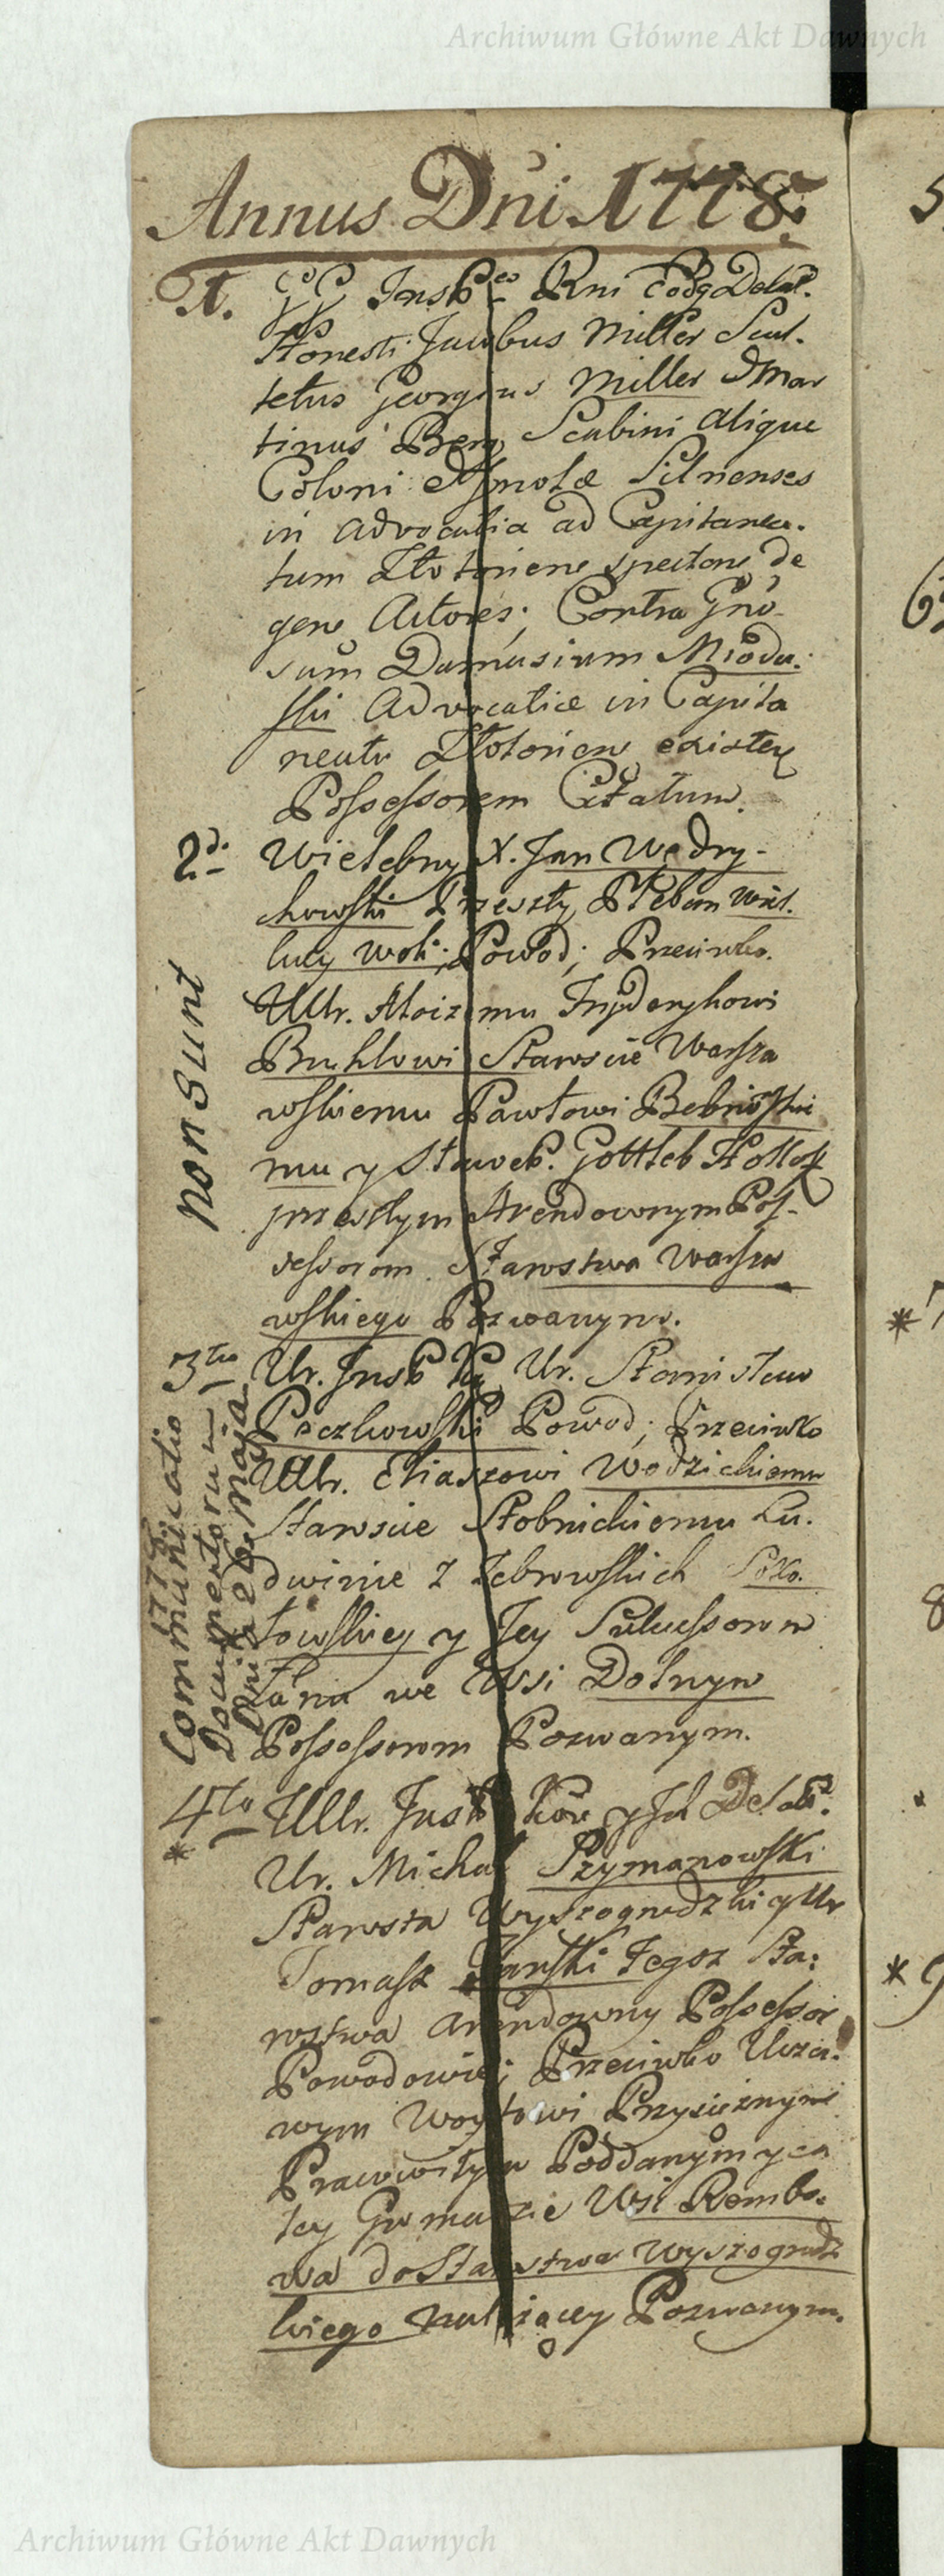 Archiwum Główne Akt Dawnych
Annus Dni 1778.
1. GG Inst Rni Codg Delat.
Honesti Jacobus Miller Scul.
tetus Georgius Miller & Mar
tinus Berg Scabini alique
Coloni & Incolæ Silnenses
in Advocatia ad Capitanea.
tum Złotoriens spectans de
gens Actores; Contra Gno
sum Damasium Miodu.
ski Advocatiæ in Capita
neatu Złotoriens existen
Possessorem Citatum.
2do Wielebny X. Jan Wędry-
chowski Przeszły Pleban Wiel.
kiey Woli; Powod; Przeciwko.
UUr. Aloizemu Fryderykowi
Bruhlowi Staroscie Warsza
wskiemu Pawłowi Bebnowski
mu y Sławet. Gottleb
przeszłym Arendownym Pos-
sessorom Starostwa Warsza
wskiego Pozwanym.
non sunt
3tio Ur. Inst Ur. Stanisław
Pęczkowski Powod; Przeciwko
UUr. Eliaszowi Wodzickiemu
Staroscie Stobnickiemu Lu.
dwinie z Zebrowskich Soko.
łowskiey y Jey Sukcessorom
Łanu we Wsi Dolnym
Possessorom Pozwanym.
Communicatio
Documentorum
4to UUr. Inst Kor y Ich Delat.
* Ur. Michał Szymanowski
Starosta Wyszogrodzki y Ur
Tomasz Tegoz Sta:
rostwa arendowny Possessor
Powodowie; Przeciwko Uczci.
wym Woytowi Przysiężnym
Pracowitym Poddanym y ca
łey Gromadzie Wsi Rembo.
wa do Starostwa Wyszogrodz
kiego należącey Pozwanym.
Archiwum Główne Akt Dawnych